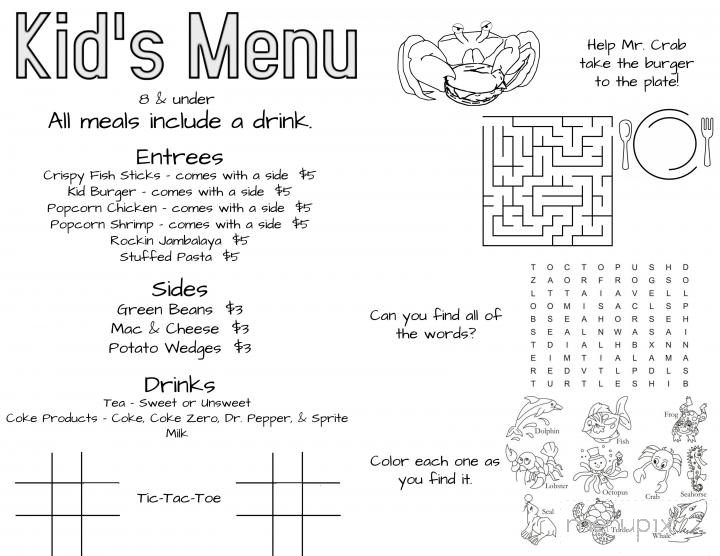 Kid's Menu
8 & under
All meals include a drink.
Entrees
Crispy Fish Sticks - comes with a side $5
Kid Burger - comes with a side $5
Popcorn Chicken - comes with a side $5
Popcorn Shrimp - comes with a side $5
Rockin Jambalaya $5
Stuffed Pasta $5
Sides
Green Beans $3
Mac & Cheese $3
Potato Wedges $3
Drinks
Tea - Sweet or Unsweet
Coke Products - Coke, Coke Zero, Dr. Pepper, & Sprite
Milk
Tic-Tac-Toe
Help Mr. Crab
take the burger
to the plate!
Can you find all of
the words?
T O C T O P U S H D
Z A O R F R O G S O
L T T A I A V E L L
O O M I S A C L S P
B S E A H O R S E H
S E A L N W A S A I
T D I A L H B X N N
E I M T I A L A M A
R E D V T L P D L S
T U R T L E S H I B
Color each one as
you find it.
Dolphin
Fish
Frog
Lobster
Octopus
Crab
Seahorse
Seal
Turtle
Whale
menupix